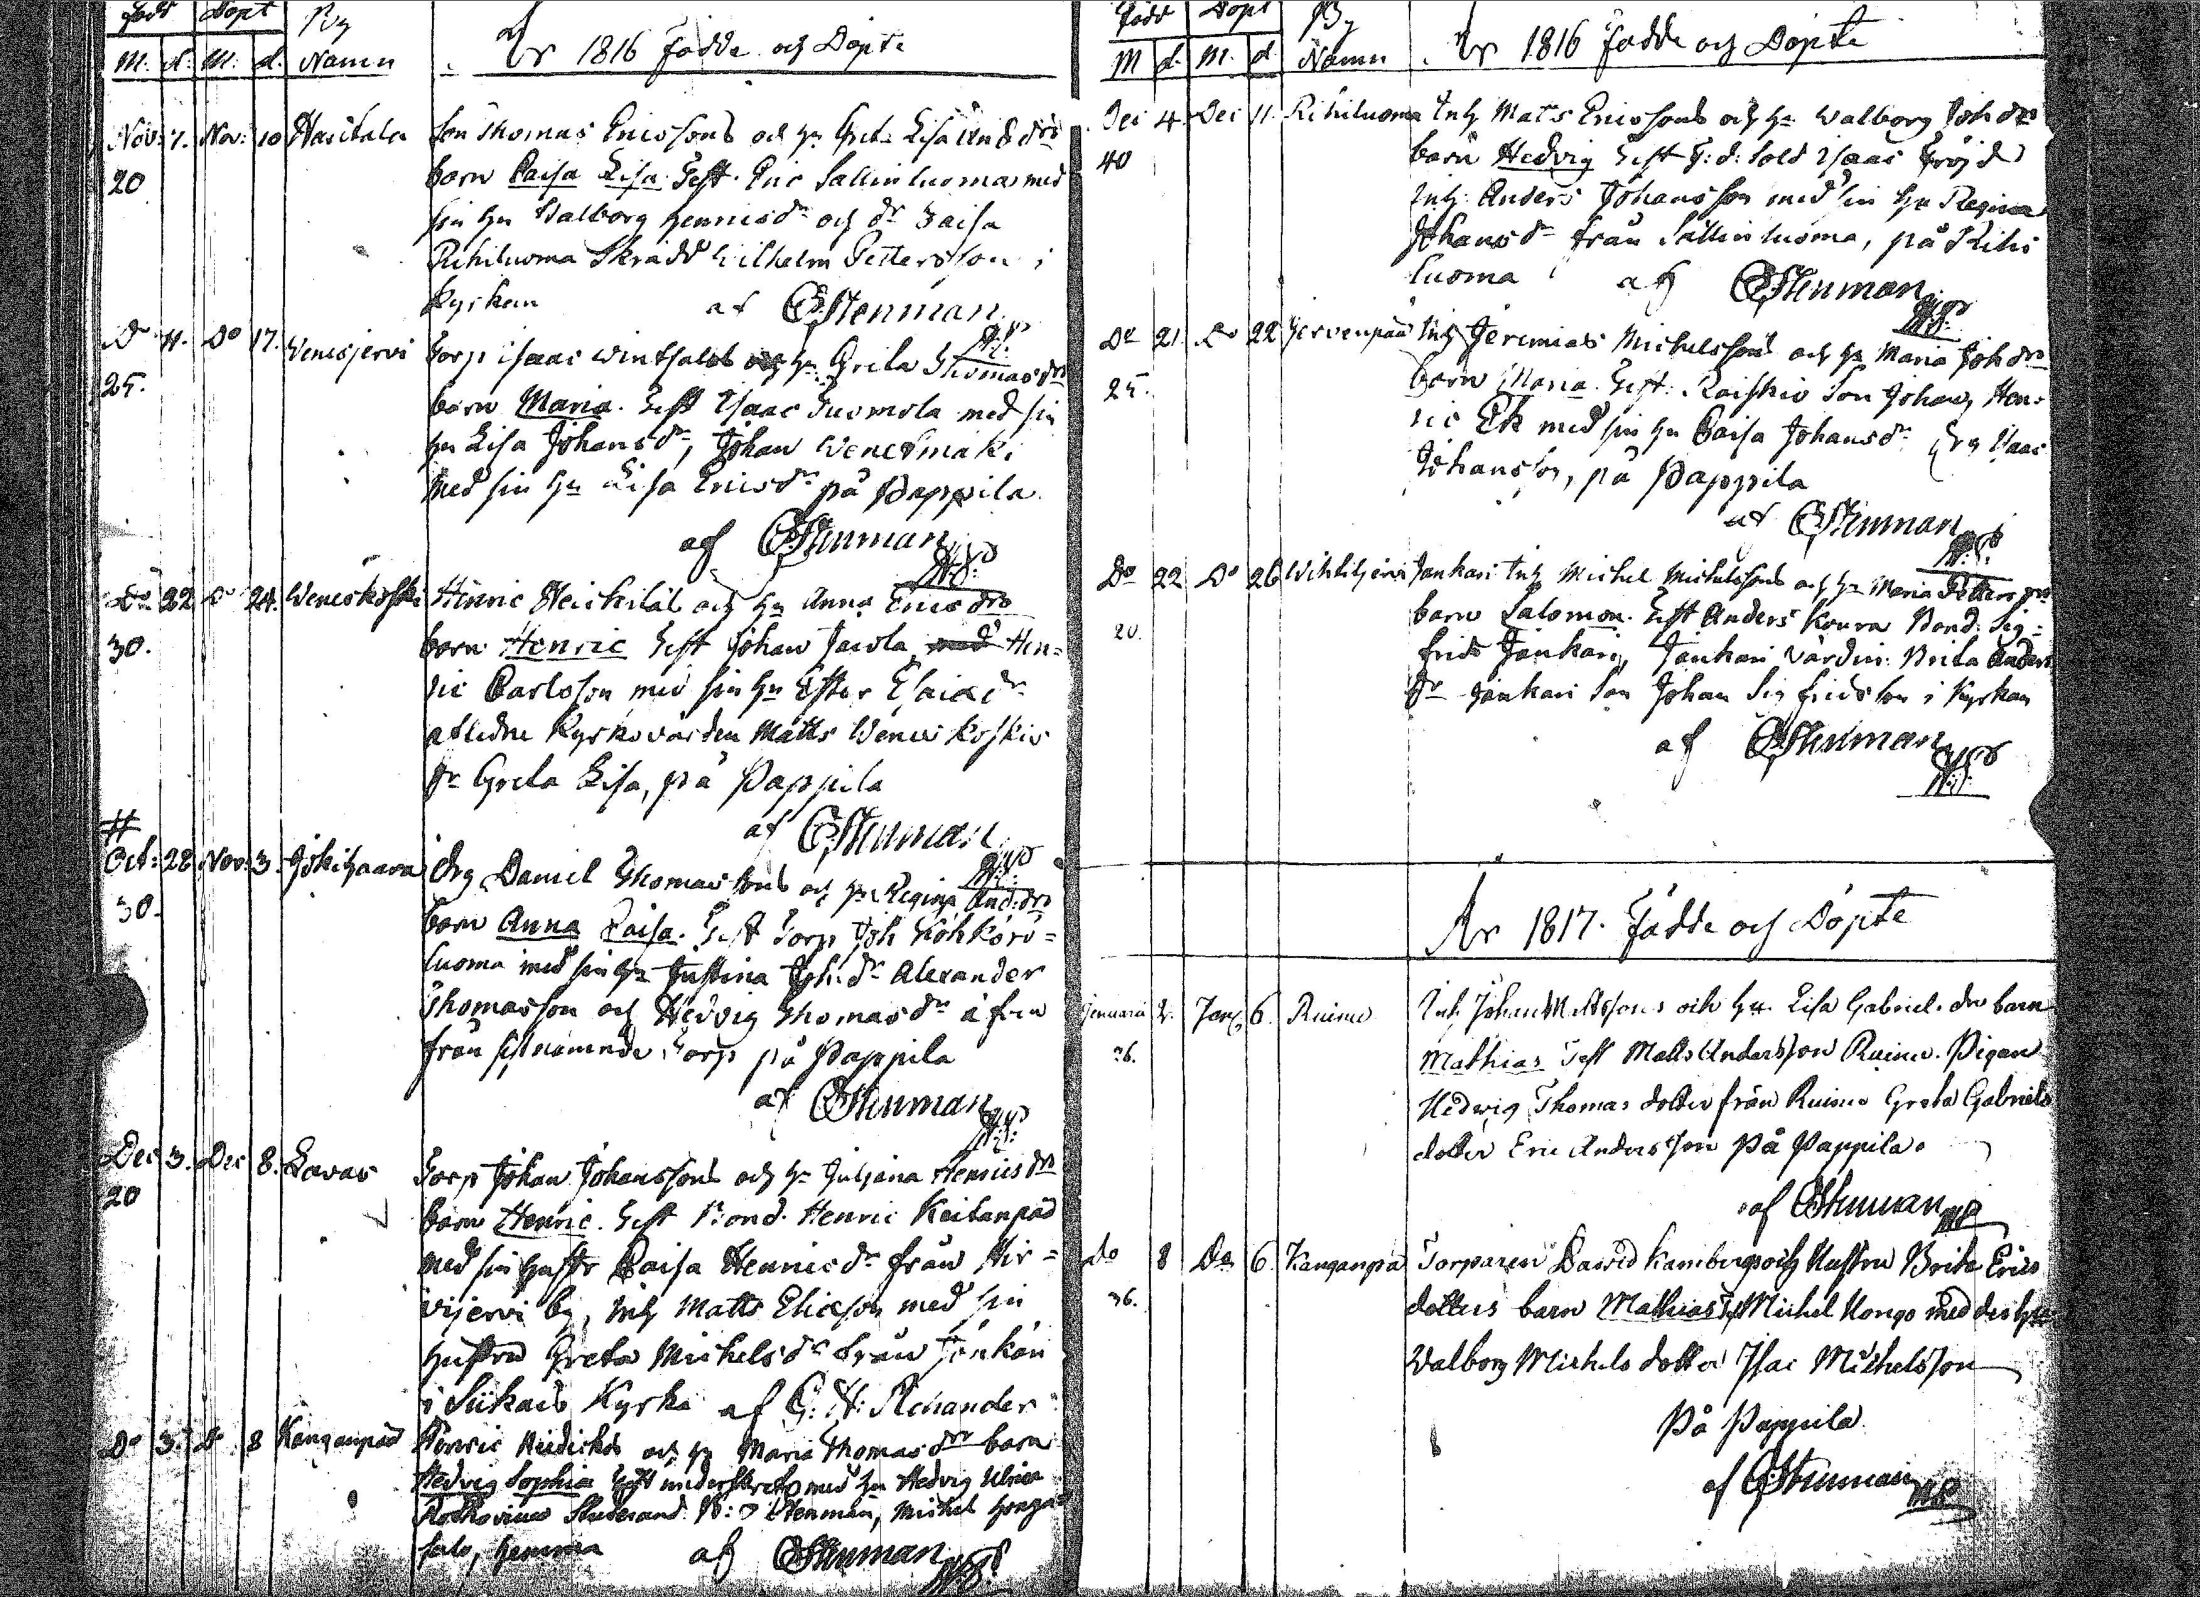 Född Döpt By
M. d. M. d. Namn
År 1816 Födde och Döpte
Nov: 7. Nov: 10 Hasitala
20
Son Thomas Ericssons och Hu Gret: Lisa And drs
barn Caisa Lisa. Test. Eric Sallinluoma med
sin Hu Walborg Henricsdr och dr Caisa
Rihiluoma Skrädd Wilhelm Pettersson i
Kyrkan af CStenman
Do 11. Do 17. Wenesjervi
25.
Torp Isaac och Hu Greta Thomasdrs
barn Maria. Test Isaac Tuomola med sin
Hu Lisa Johansdr, Johan Wenesmäki
med sin Hu Lisa Ericsdr på Pappila
af CStenman
Do 22 Do 24. Weneskoski
30.
Henric Heickiläs och Hu Anna Ericsdrs
barn Henric Test Johan Jacola, Hen=
ric Carlsson med sin Hu Ester Esaiædr
afledne Kyrkovärden Matts Weneskoskis
dr Greta Lisa, på Pappila
af CStenman
#
Oct: 28 Nov: 3. Jokihaara
30.
Drg Daniel Thomassons och Hu Regina And:drs
barn Anna Caisa. Test Torp Joh Kohkörö=
luoma med sin Hu Justina Joh:dr Alexander
Thomasson och Hedvig Thomasdr
från sistnämnde Torp på Pappila
af CStenman
Dec 3. Dec 8. Lavas
20
Torp Johan Johanssons och Hu Juliana Henricsdrs
barn Henric. Test Bond. Henric Keitanpää
med sin Hustr Caisa Henricsdr från Hir=
vijervi by, Inh Matts Ericsson med sin
Hustru Greta Michelsdr från
i Siikais Kyrka af G: H: Renander
Do 3. Do 8 Kanganpää
Henric och Hu Maria Thomasdrs barn
Hedvig Sophia Test med Hu Hedvig Ulrica
Stenman, Michel Honga=
salo, Hemma af CStenman
Född Döpt By
M d. M. d Namn
År 1816 Födde och Döpte
Dec 4. Dec 11. Rihiluoma
40
Inh Mats Ericssons och Hu Walborg Johdrs
barn Hedvig Test F:d: Sold Isaac Fröjd
Inh Anders Johansson med sin Hu Regina
Johansdr från Sallinluoma, på Rihi
luoma af CStenman
Do 21. Do 22 Jervenpää
25.
Inh Jeremias Michelssons och Hu Maria Johdrs
barn Maria. Test: Raiskio Son Johan, Hen=
ric Ek med sin Hu Caisa Johansdr Drg Isaac
Johansson, på Pappila
af CStenman
Do 22 Do 26 Wihtijervi
20.
Jankari Inh Michel Michelssons och Hu Maria Petters drs
barn Salomon. Test Anders Koura Bond. Sig=
frid Jankari, Jankari värdin: Brita Anders
dr Jankari Son Johan Sigfridsson i Kyrkan
af CStenman
År 1817. Födde och Döpte
Januari 2. Janr 6. Ruimo
26.
Inh Johan Mattssons och Hu. Lisa Gabriel. drs barn
Mathias Test Matts Andersson Ruimo. Pigan
Hedwig Thomas dotter från Ruimo Greta Gabriels
dotter Eric Andersson På Pappila.
af CStenman
Do 8 Do 6. Kanganpä
36.
Torparen David Kambergs och Hustru Brita Erics
dotters barn Mathias Test Michel Kongo med des Hu
Walborg Michels dotter Isac Michelsson
På Pappila
af CStenman